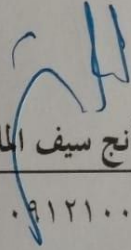 نج سيف الما
٠٩١٢١٠٠